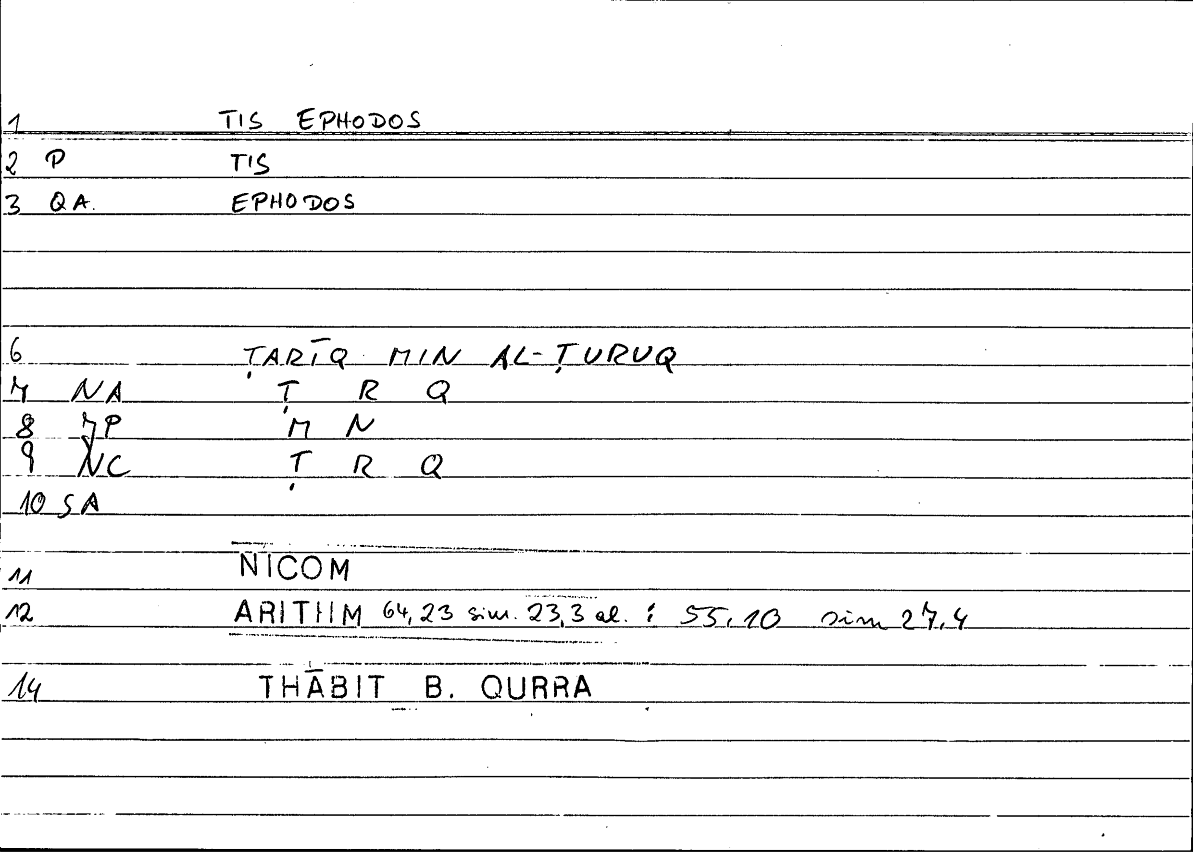 1 TIS EPHODOS
2 P TIS
3 QA. EPHODOS
6 ṬARĪQ MIN AL-ṬURUQ
7 NA Ṭ R Q
8 JP M N
9 NC Ṭ R Q
10 SA
11 NICOM
12 ARITHM 64,23 sim. 23,3 al. : 55,10 sim 27,4
14 THĀBIT B. QURRA